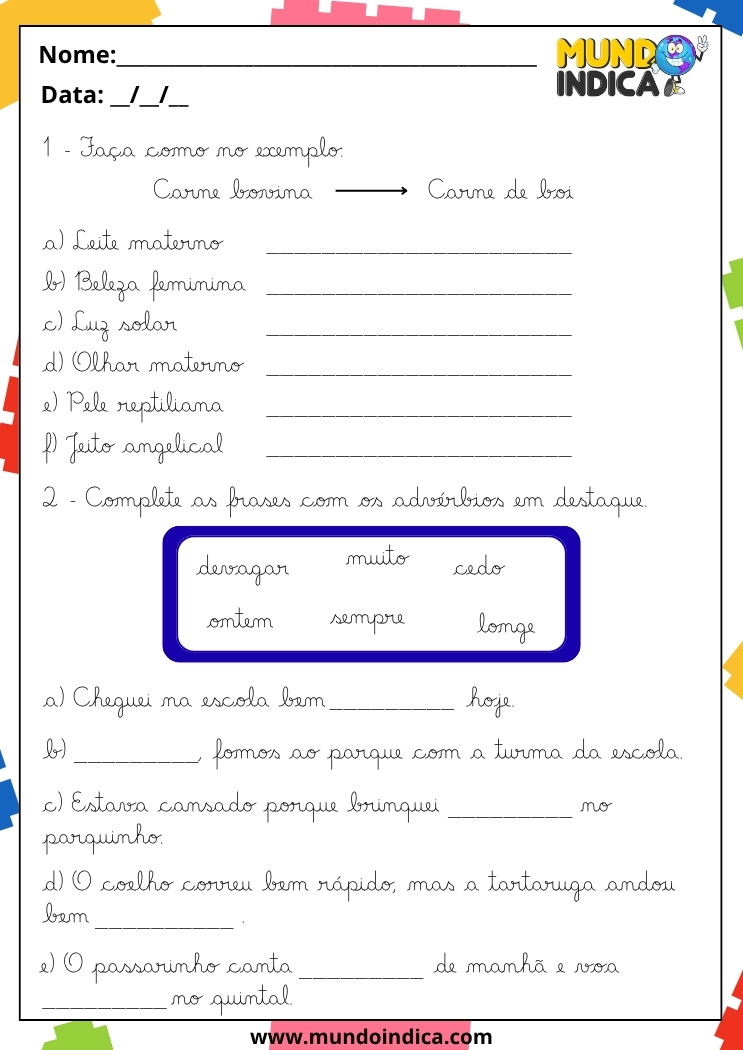 Nome:______________________________
Data: __/__/__
MUNDO
INDICA
1 - Faça como no exemplo:
Carne bovina → Carne de boi
a) Leite materno ______________________
b) Beleza feminina ______________________
c) Luz solar ______________________
d) Olhar materno ______________________
e) Pele reptiliana ______________________
f) Jeito angelical ______________________
2 - Complete as frases com os advérbios em destaque.
devagar muito cedo
ontem sempre longe
a) Cheguei na escola bem_________ hoje.
b) _________, fomos ao parque com a turma da escola.
c) Estava cansado porque brinquei _________ no
parquinho.
d) O coelho correu bem rápido, mas a tartaruga andou
bem __________ .
e) O passarinho canta _________ de manhã e voa
_________ no quintal.
www.mundoindica.com